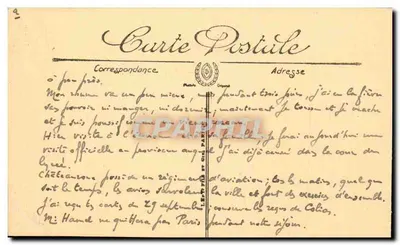 Carte Postale
Correspondance
Adresse
à peu près.
Mon rhume va un peu mieux, mais pendant trois jours, j'ai eu la fièvre
sans pouvoir ni manger, ni dormir, maintenant je tousse et je crache
et je suis poussif
Hier visite à je ferai aujourd'hui une
visite officielle au proviseur auquel j'ai déjà causé dans la cour du
lycée.
Châteauroux possède un régiment d'aviation; tous les matins, quel que
soit le temps, les avions survolent la ville et font des exercices d'ensemble.
J'ai reçu les cartes du 29 septembre;
par Paris pendant notre séjour.